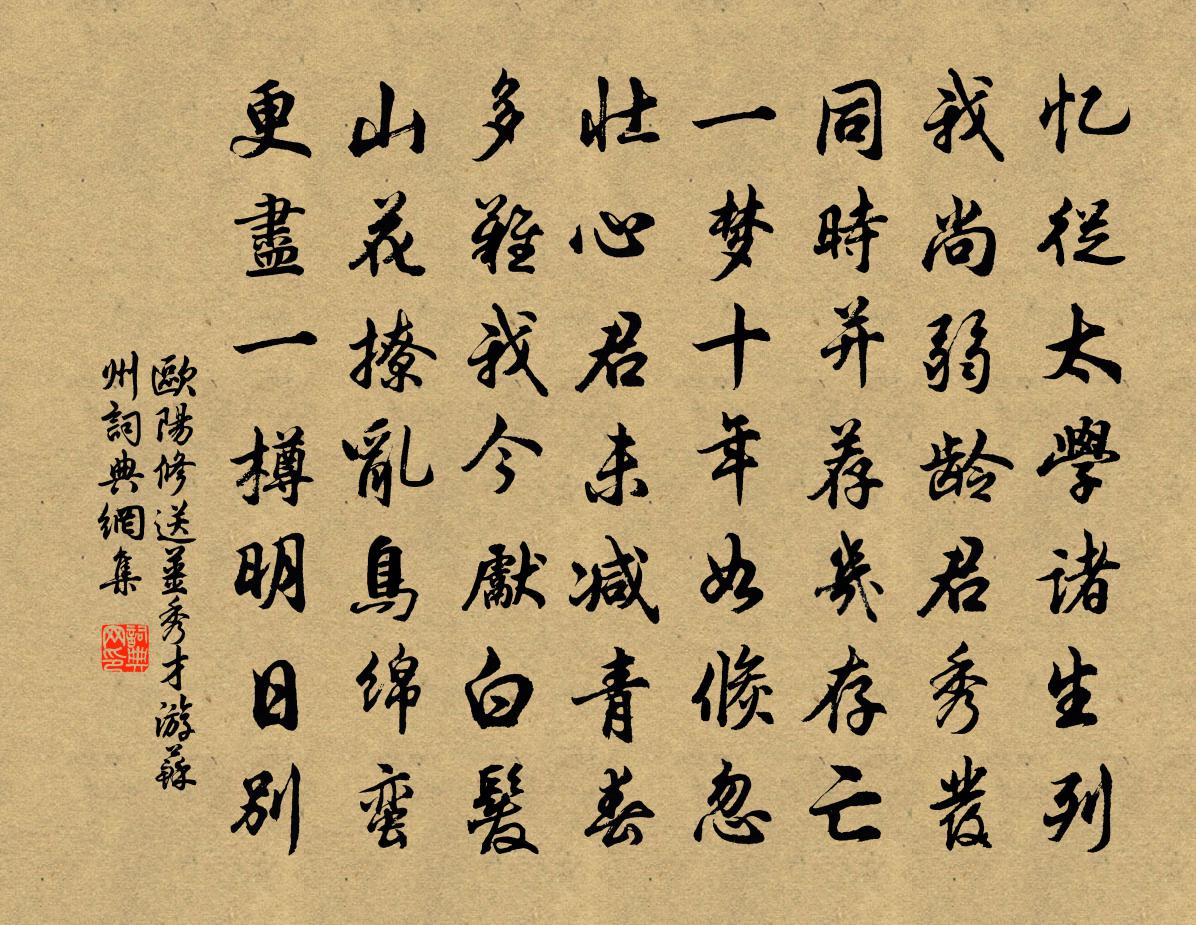 忆從太學諸生列
我尚弱龄君秀發
同時并荐幾存亡
一梦十年如倏忽
壮心君未减青春
多難我今獻白髮
山花撩亂鳥綿蛮
更盡一樽明日别
歐陽修送薑秀才游蘇
州詞典網集
詞典
网印